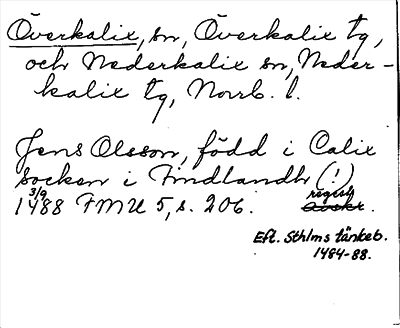 Överkalix, sn, Överkalix tg,
och Nederkalix sn, Neder-
kalix tg, Norrb. l.
Jens Olsson, född i Calix
socken i Findlandh (!)
3/9 1488 FMU 5, s. 206. regisb.
Eft. Sthlms tänkeb.
1484-88.